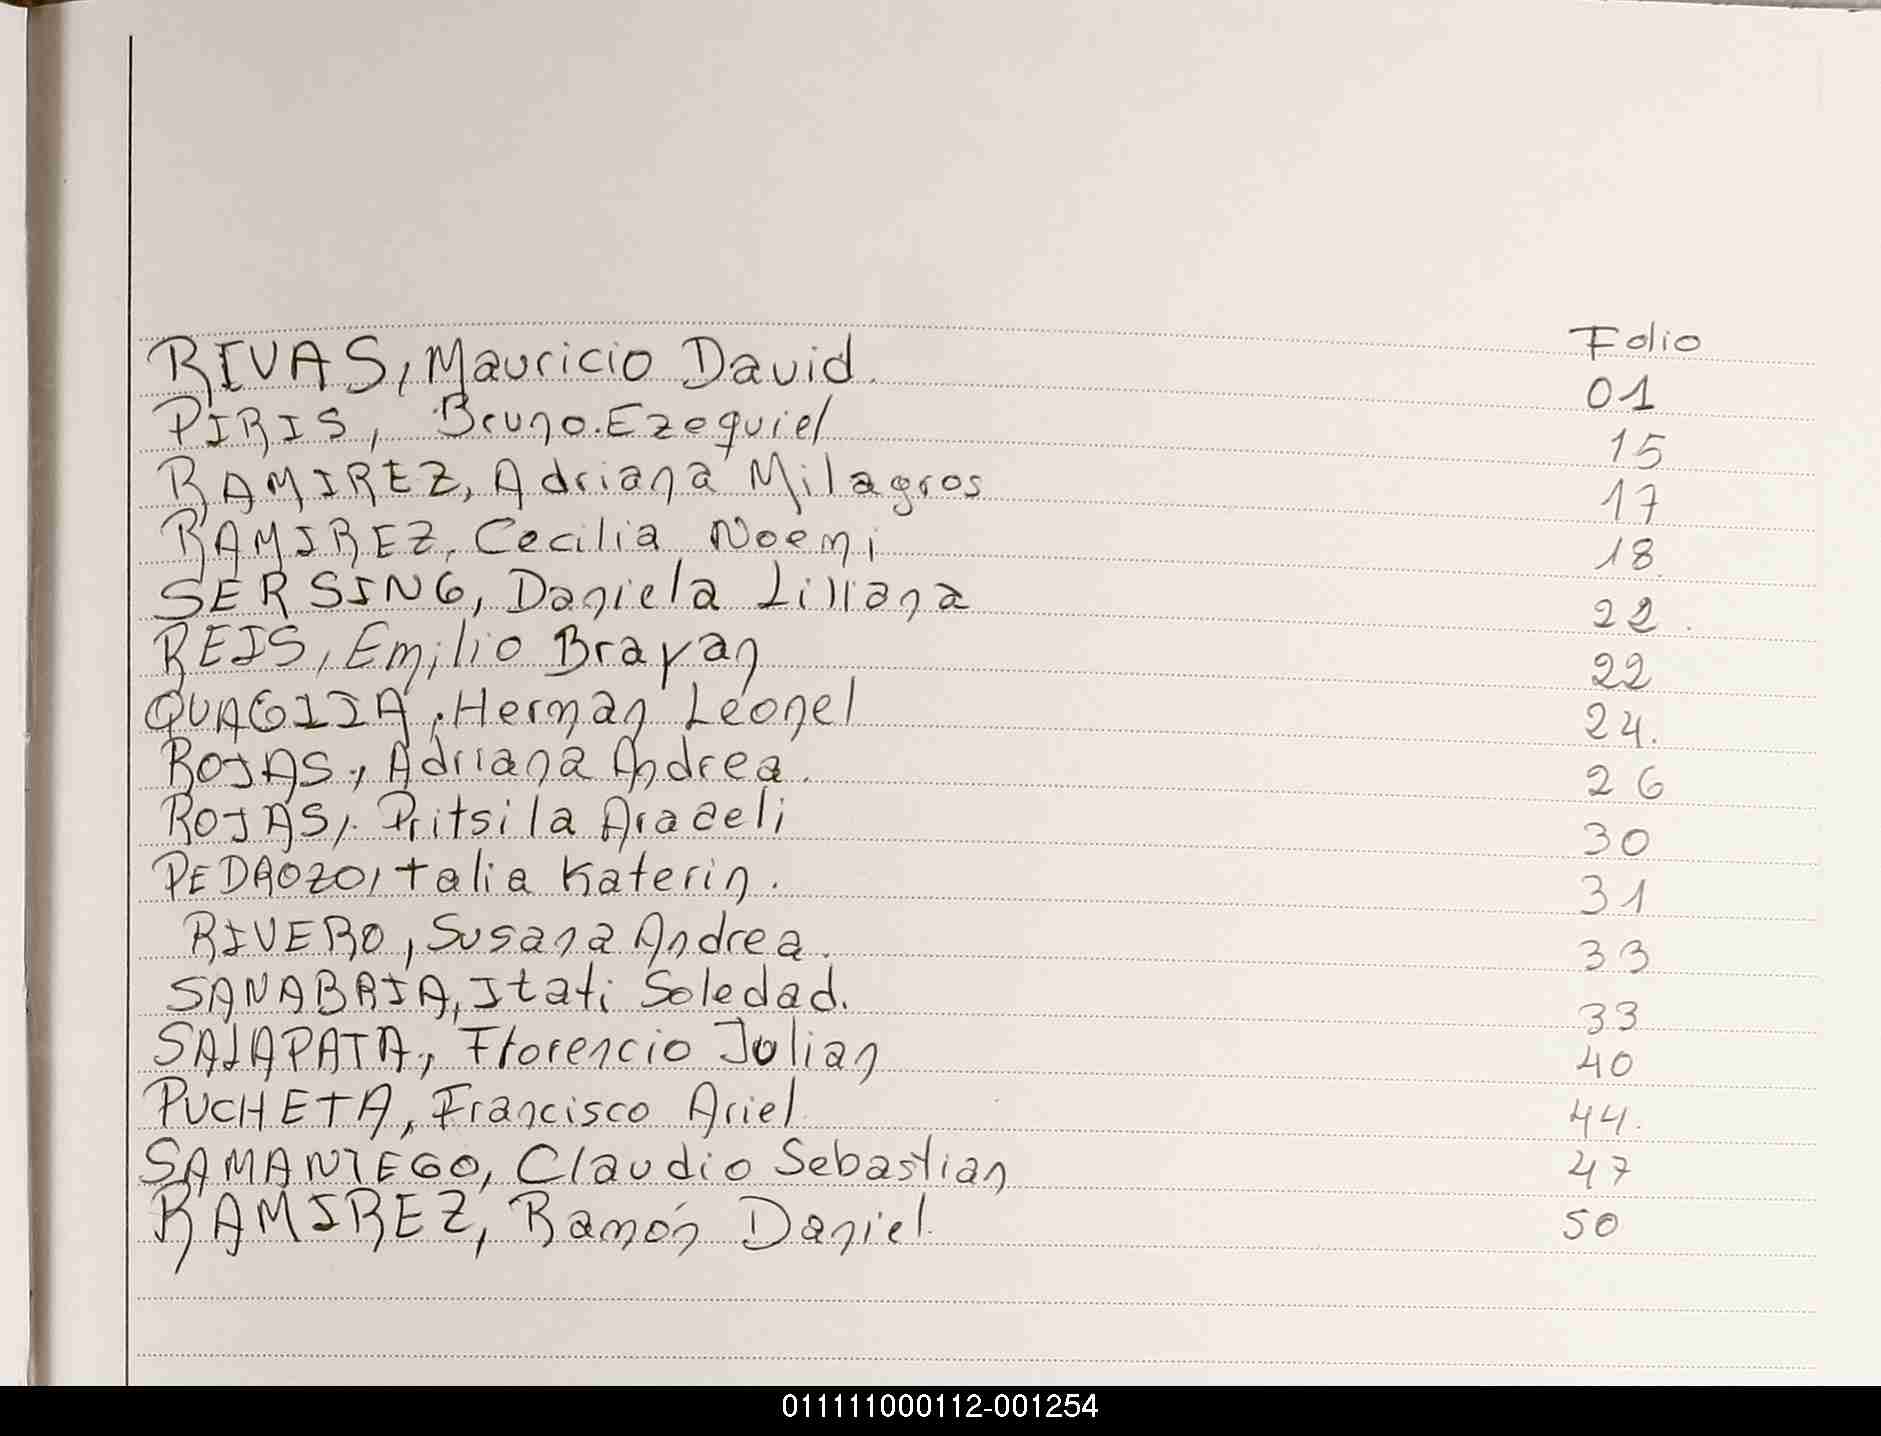 Folio
RIVAS, Mauricio David. 01
PIRIS, Bruno Ezequiel 15
RAMIREZ, Adriana Milagros 17
RAMIREZ, Cecilia Noemi 18
SERSING, Daniela Liliana 22.
REIS, Emilio Brayan 22
QUAGLIA, Herman Leonel 24.
ROJAS, Adriana Andrea. 26
ROJAS, Pritsila Araceli 30
PEDROZO, talia Katerin. 31
RIVERO, Susana Andrea. 33
SANABRIA, Itati Soledad. 33
SALAPATA, Florencio Julian 40
PUCHETA, Francisco Ariel 44.
SAMANIEGO, Claudio Sebastian 47
RAMIREZ, Ramón Daniel. 50
011111000112-001254